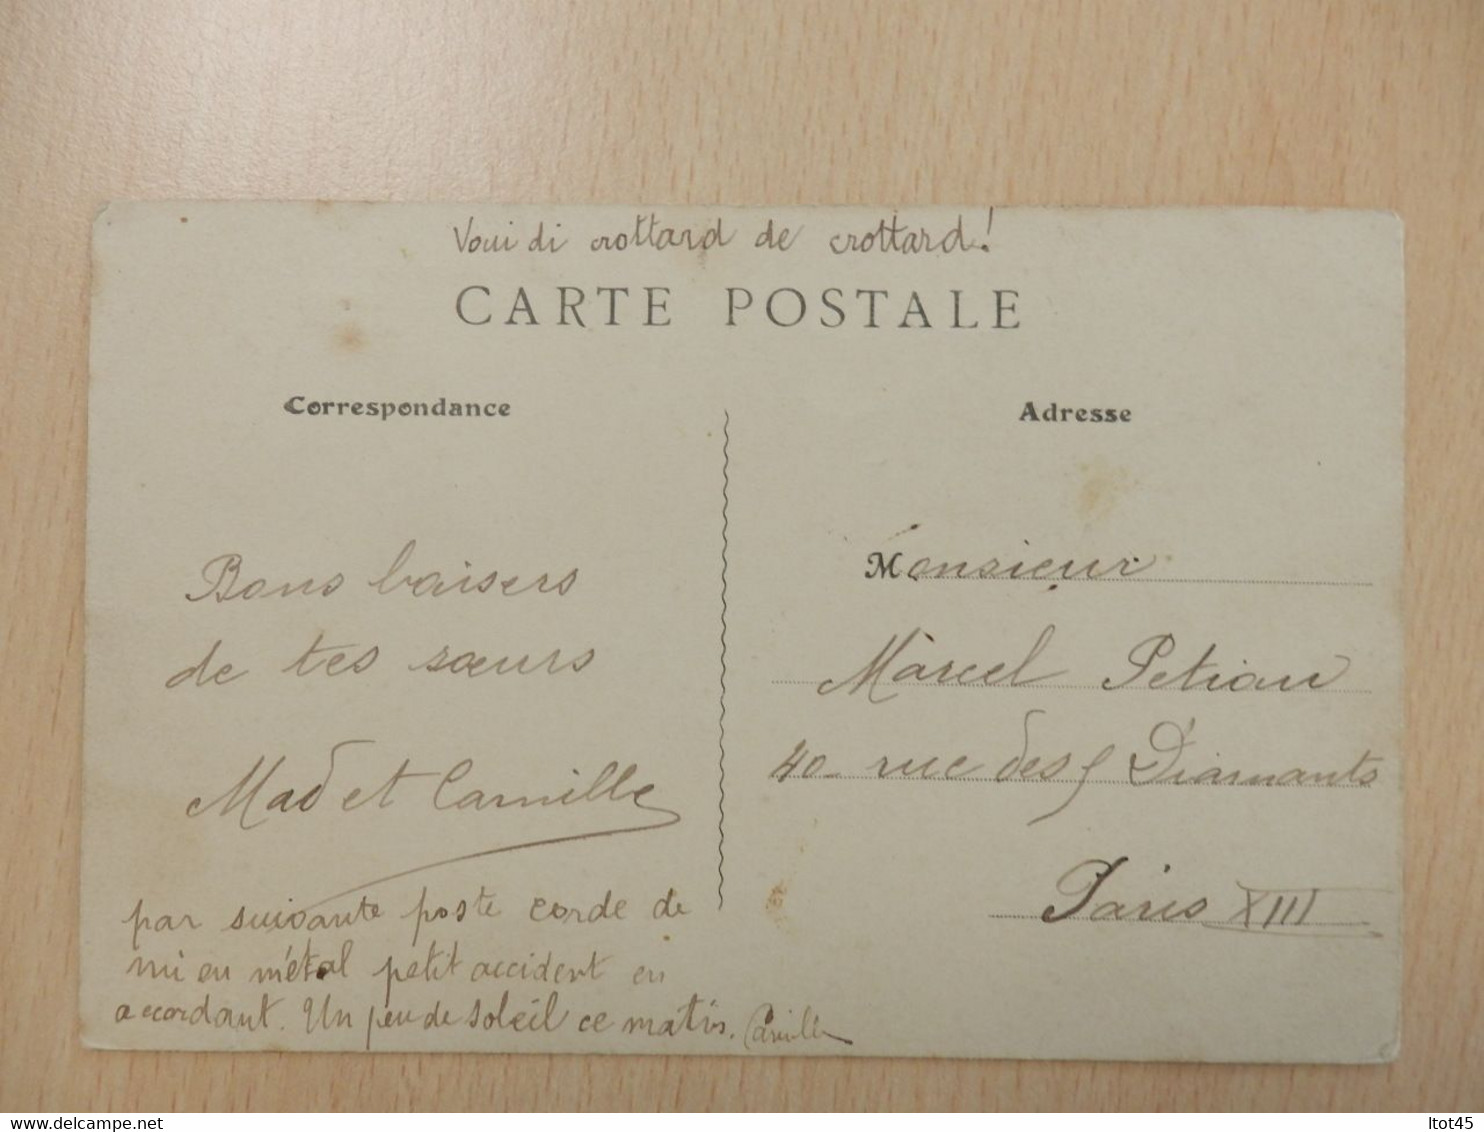 Voui di crottard de crottard!
CARTE POSTALE
Correspondance
Adresse
Bons baisers
de tes sœurs
Mad et Camille
par suivante poste corde de
mi en métal petit accident en
accordant. Un peu de soleil ce matin. Camille
Monsieur
Marcel Petiau
40 rue des 5 Diamants
Paris XIII
delcampe.net
ltot45